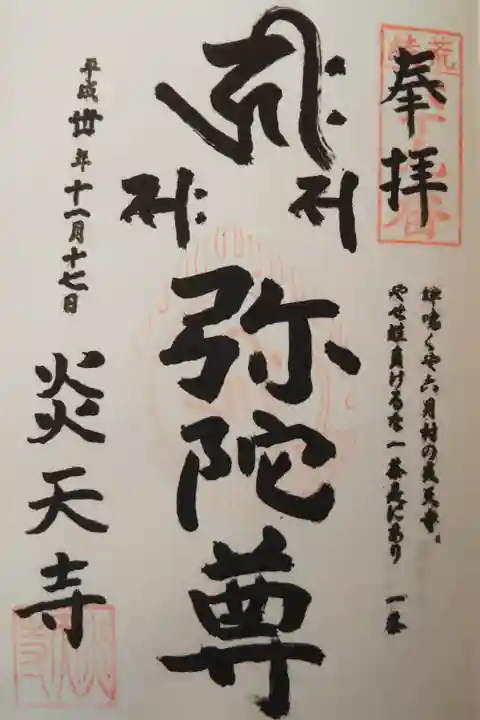 奉拝
蝉鳴くや六月村の炎天寺
やせ蛙負けるな一茶是にあり 一茶
弥陀尊
平成廿年十一月十七日
炎天寺